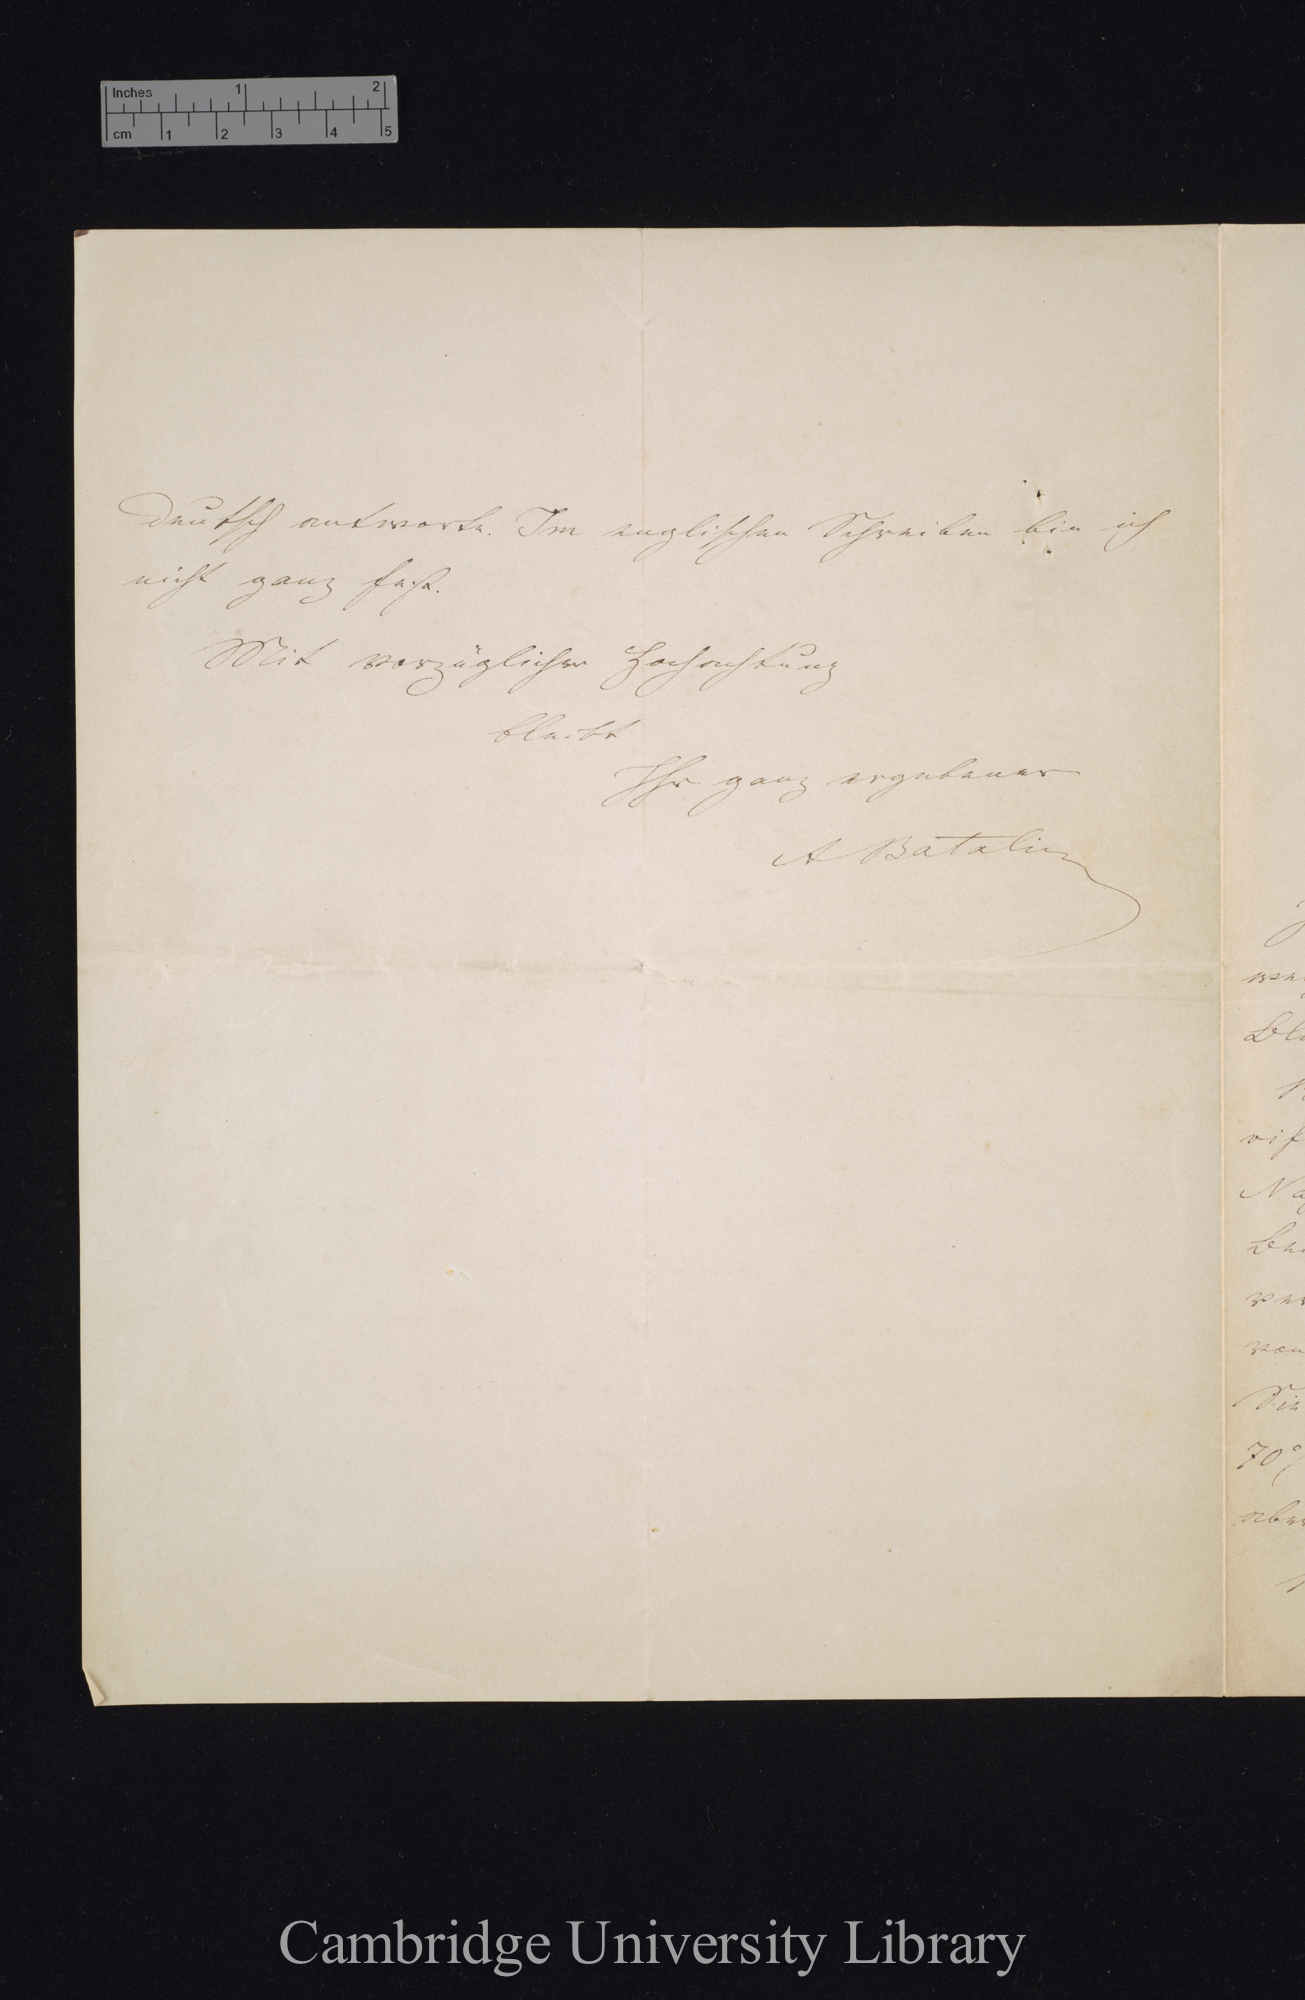 Inches 1 2
cm 1 2 3 4 5
deutsch antworte. Im englischen Schreiben bin ich
nicht ganz fest.
Mit vorzüglicher Hochachtung
bleibt
Ihr ganz ergebener
A Batalin
70%
Cambridge University Library